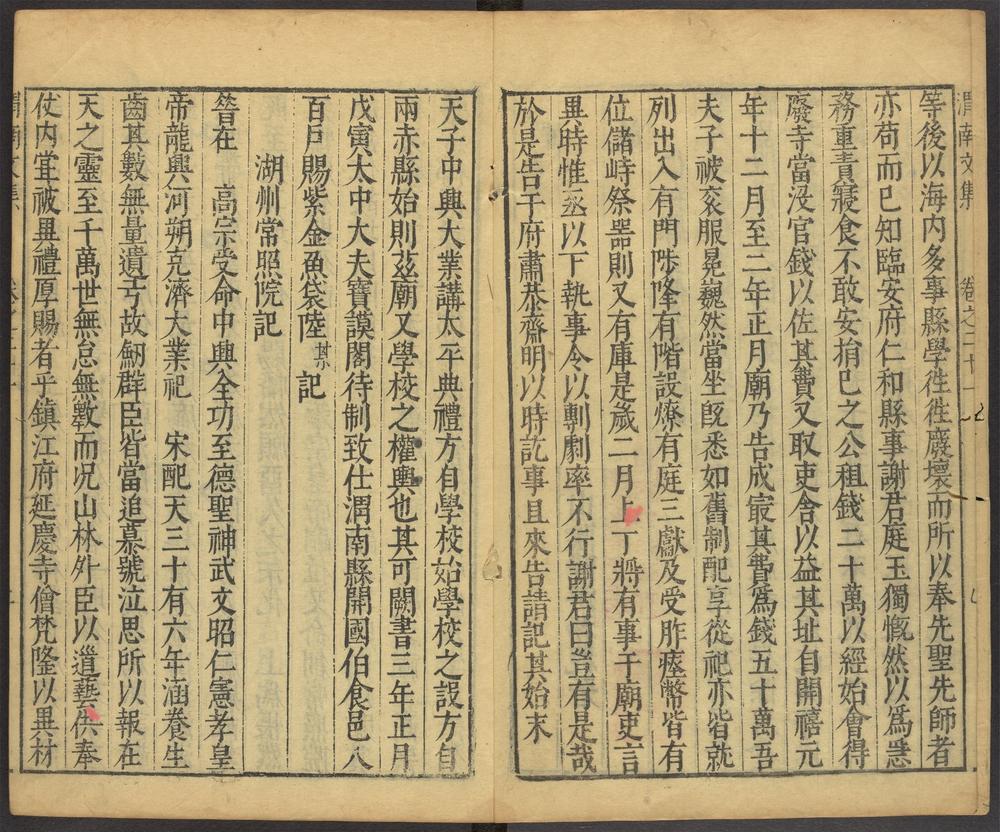 渭南文集 卷之二十一
等後以海内多事縣學徃徃廢壞而所以奉先聖先師者
亦苟而已知臨安府仁和縣事謝君庭玉獨慨然以爲㤅
務重責寢食不敢安捐已之公租錢二十萬以經始會得
廢寺當没官錢以佐其費又取吏舍以益其址自開禧元
年十二月至二年正月廟乃告成㝡其費爲錢五十萬吾
夫子被衮服冕巍然當坐旣悉如舊制配享從祀亦皆就
列出入有門陟降有階設燎有庭三獻及受胙瘞幣皆有
位儲峙祭器則又有庫是歲二月上丁將有事于廟吏言
異時惟丞以下執事令以剸劇率不行謝君曰豈有是哉
於是告于府肅恭齋明以時訖事且來告請記其始末
天子中興大業講太平典禮方自學校始學校之設方自
兩赤縣始則茲廟又學校之權輿也其可闕書三年正月
戊寅太中大夫寶謨閣待制致仕渭南縣開國伯食邑八
百戶賜紫金魚袋陸某記
湖州常照院記
昝在 高宗受命中興全功至德聖神武文昭仁憲孝皇
帝龍興河朔克濟大業祀 宋配天三十有六年涵養生
齒其數無量遺弓故劒群臣皆當追慕號泣思所以報在
天之靈至千萬世無怠無斁而况山林外臣以道藝供奉
仗内嘗被異禮厚賜者乎鎮江府延慶寺僧梵隆以異材